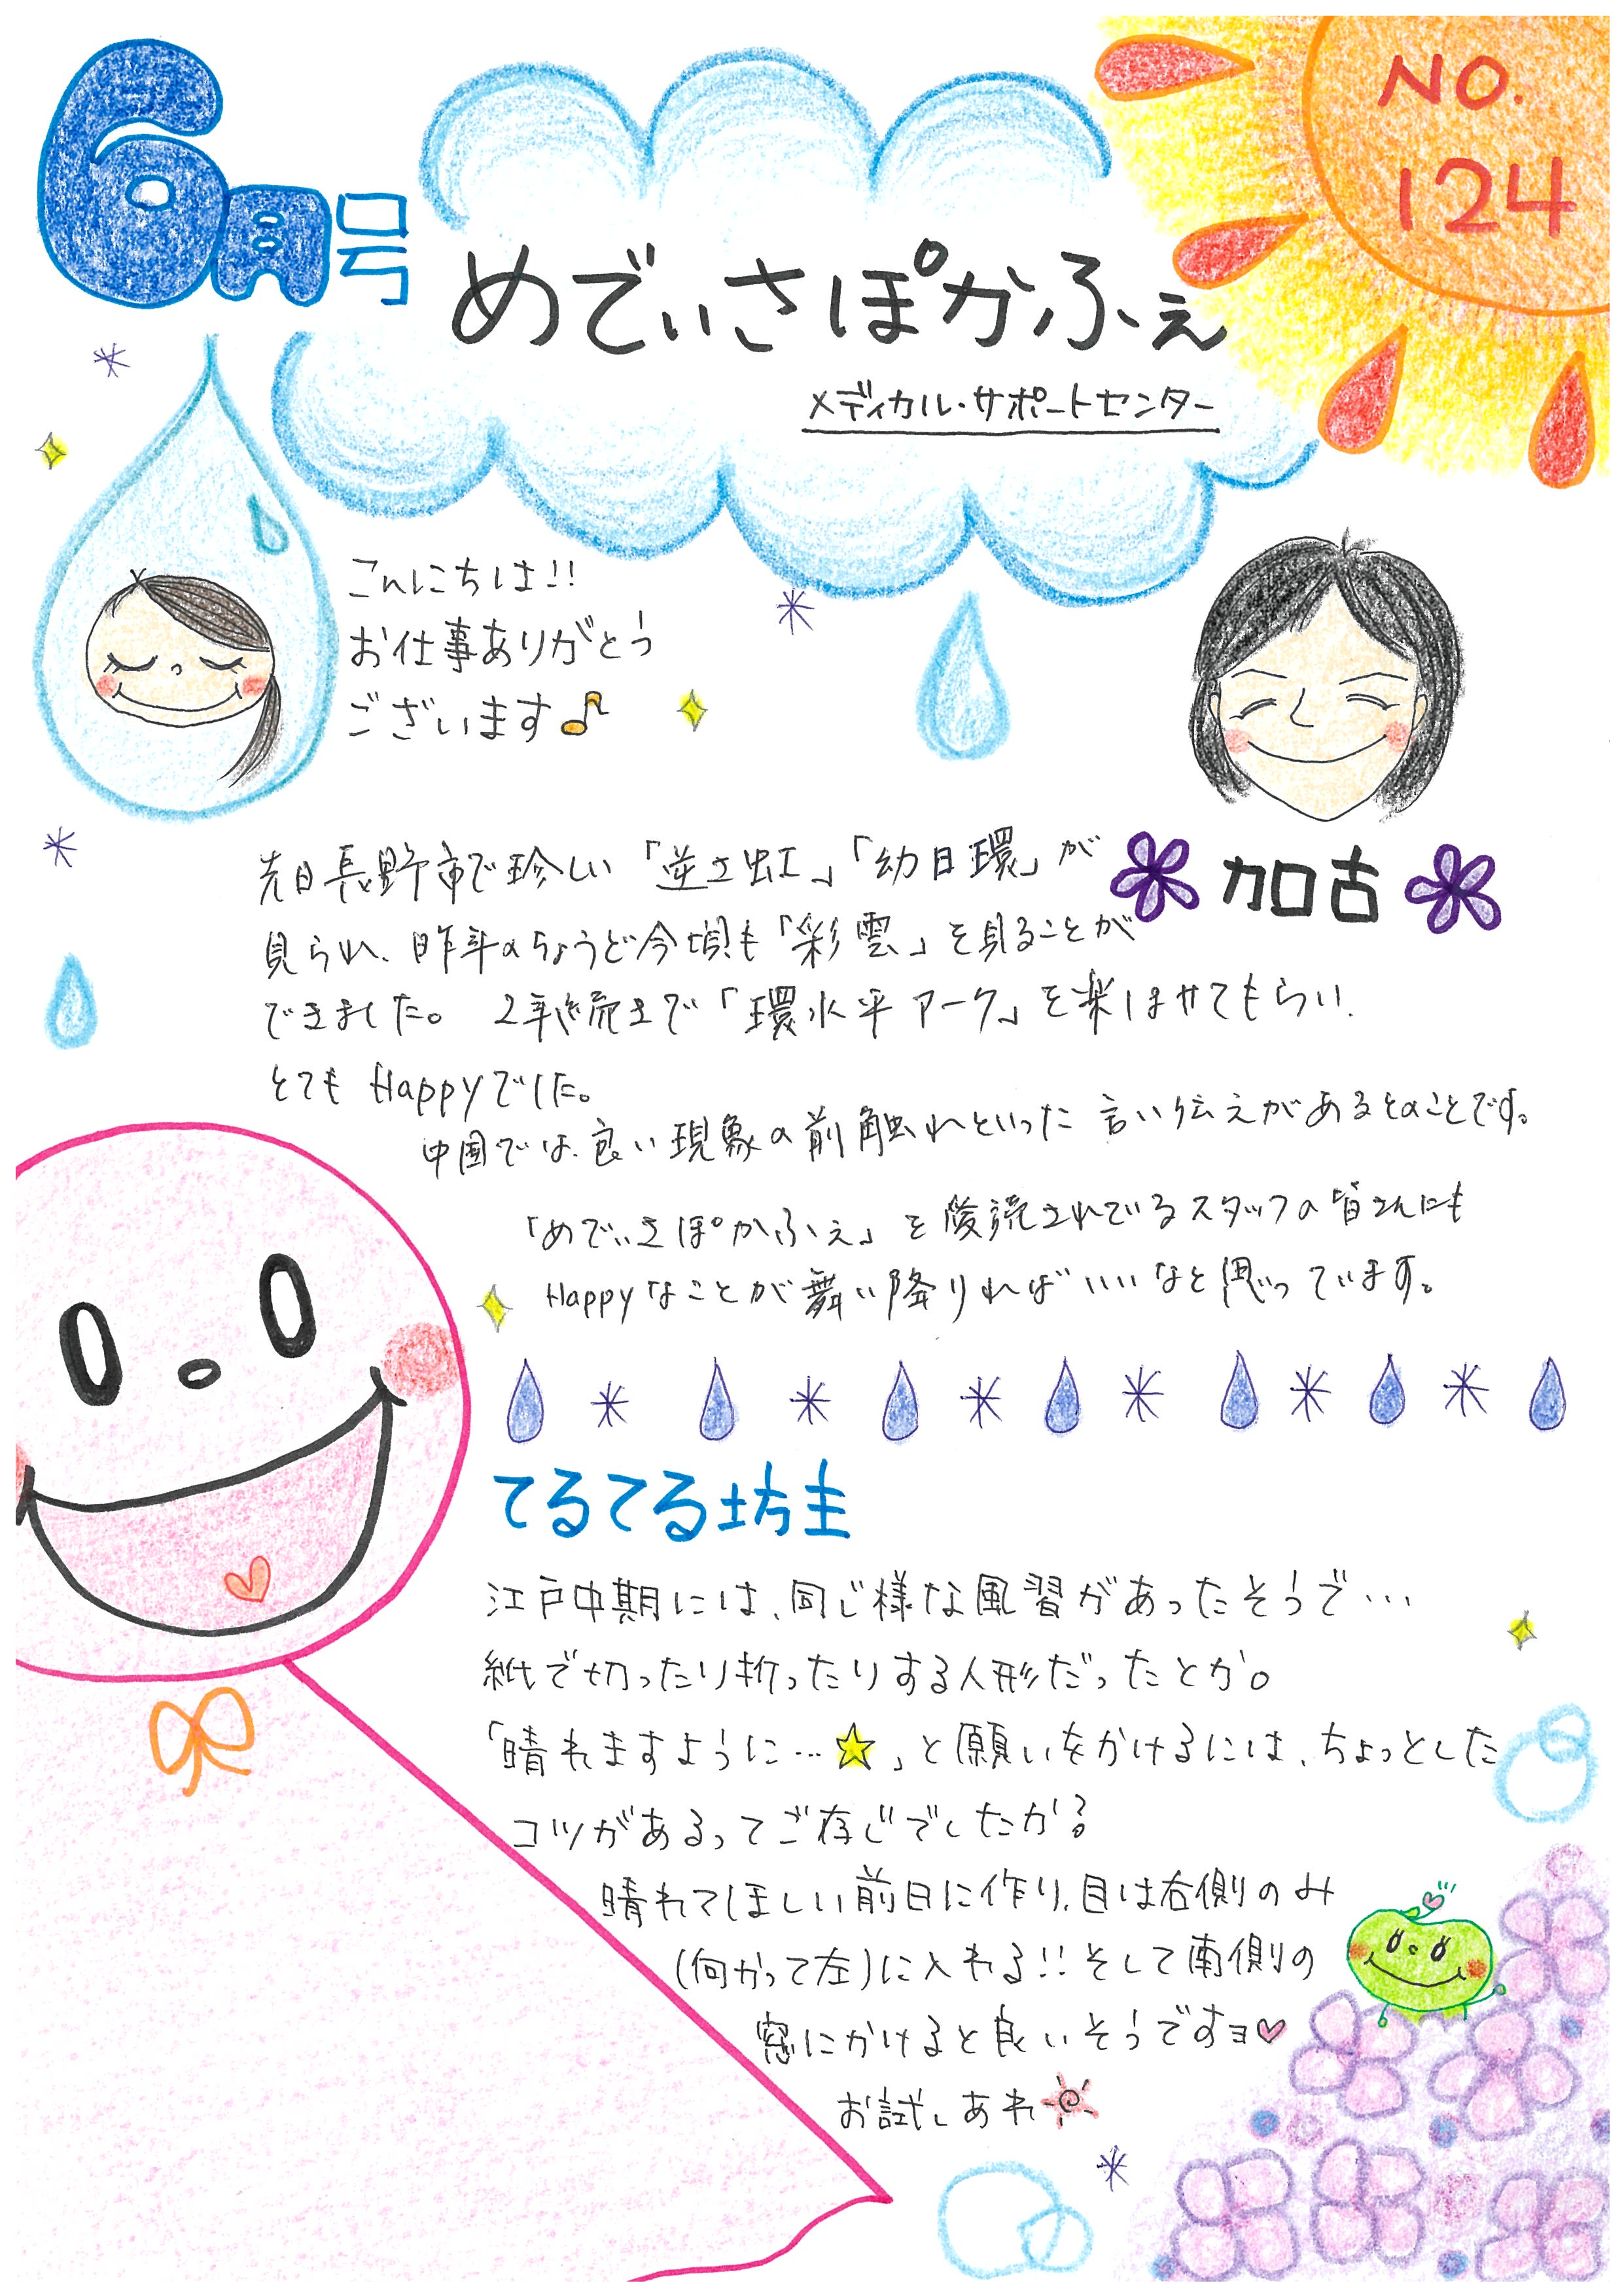 6月号
NO.
124
めでぃさぽかふぇ
メディカル・サポートセンター
こんにちは!!
お仕事ありがとう
ございます♪
加古
先日長野市で珍しい「逆さ虹」「幻日環」が
見られ、昨年のちょうど今頃も「彩雲」を見ることが
できました。2年連続まで「環水平アーク」を楽しませてもらい、
とてもHappyでした。
中国では、良い現象の前触れといった言い伝えがあるとのことです。
「めでぃさぽかふぇ」を されているスタッフの皆さんにも
Happyなことが舞い降りればいいなと思っています。
てるてる坊主
江戸中期には、同じ様な風習があったそうで…
紙で切ったり折ったりする人形だったとか。
「晴れますように…☆」と願いをかけるには、ちょっとした
コツがあるってご存じでしたか?
晴れてほしい前日に作り、目は右側のみ
(向かって左)に入れる!!そして南側の
窓にかけると良いそうですヨ♡
お試しあれ